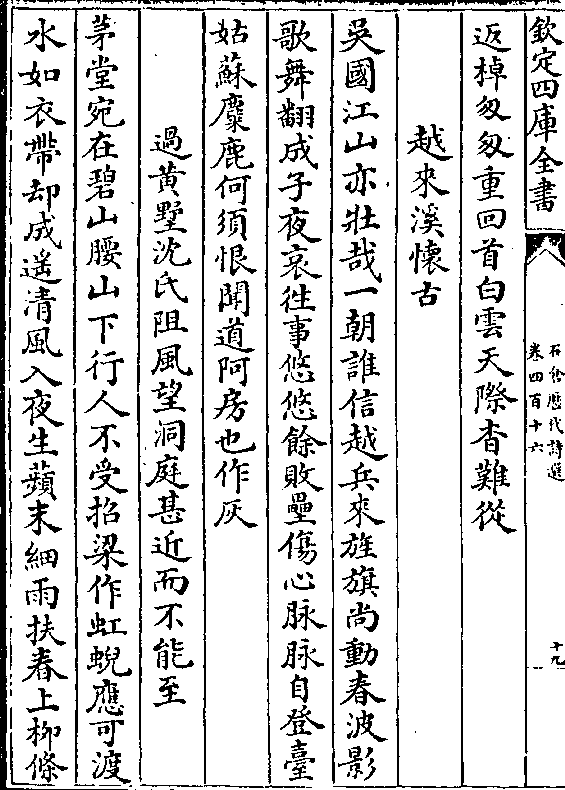 欽定四庫全書
石倉歷代詩選
卷四百十六
十九
返棹匆匆重回首白雲天際杳難從
越來溪懷古
吳國江山亦壯哉一朝誰信越兵來旌旗尚動春波影
歌舞翻成子夜哀往事悠悠餘敗壘傷心脉脉自登臺
姑蘇麋鹿何須恨聞道阿房也作灰
過黄墅沈氏阻風望洞庭甚近而不能至
茅堂宛在碧山腰山下行人不受招梁作虹蜺應可渡
水如衣帶却成遙清風入夜生蘋末細雨扶春上柳條